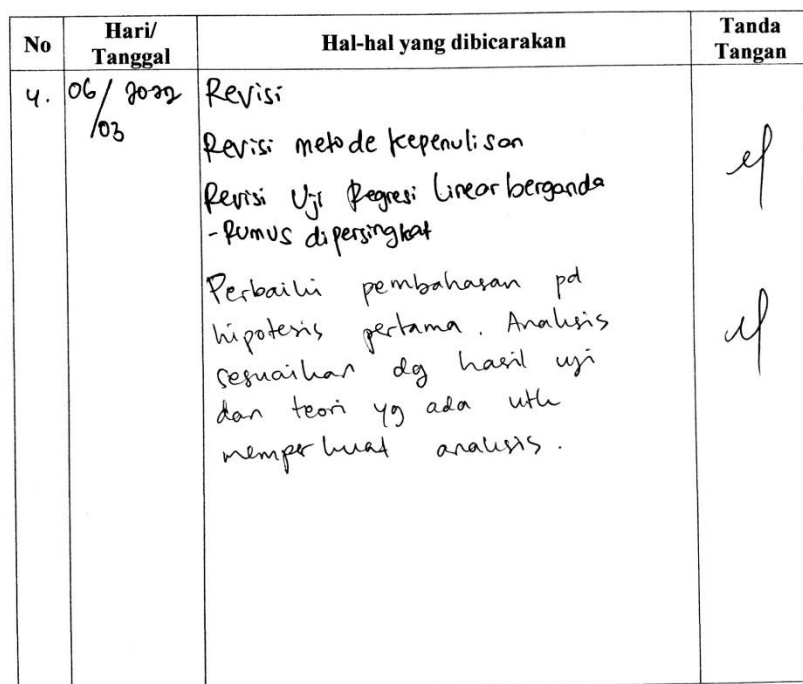 No Hari/ Tanggal Hal-hal yang dibicarakan Tanda Tangan
4. 06/03 2022 Revisi
Revisi metode kepenulisan
Revisi Uji Regresi Linear berganda
- Rumus dipersingkat
Perbaiki pembahasan pd
hipotesis pertama. Analisis
sesuaikan dg hasil uji
dan teori yg ada utk
memperkuat analisis.